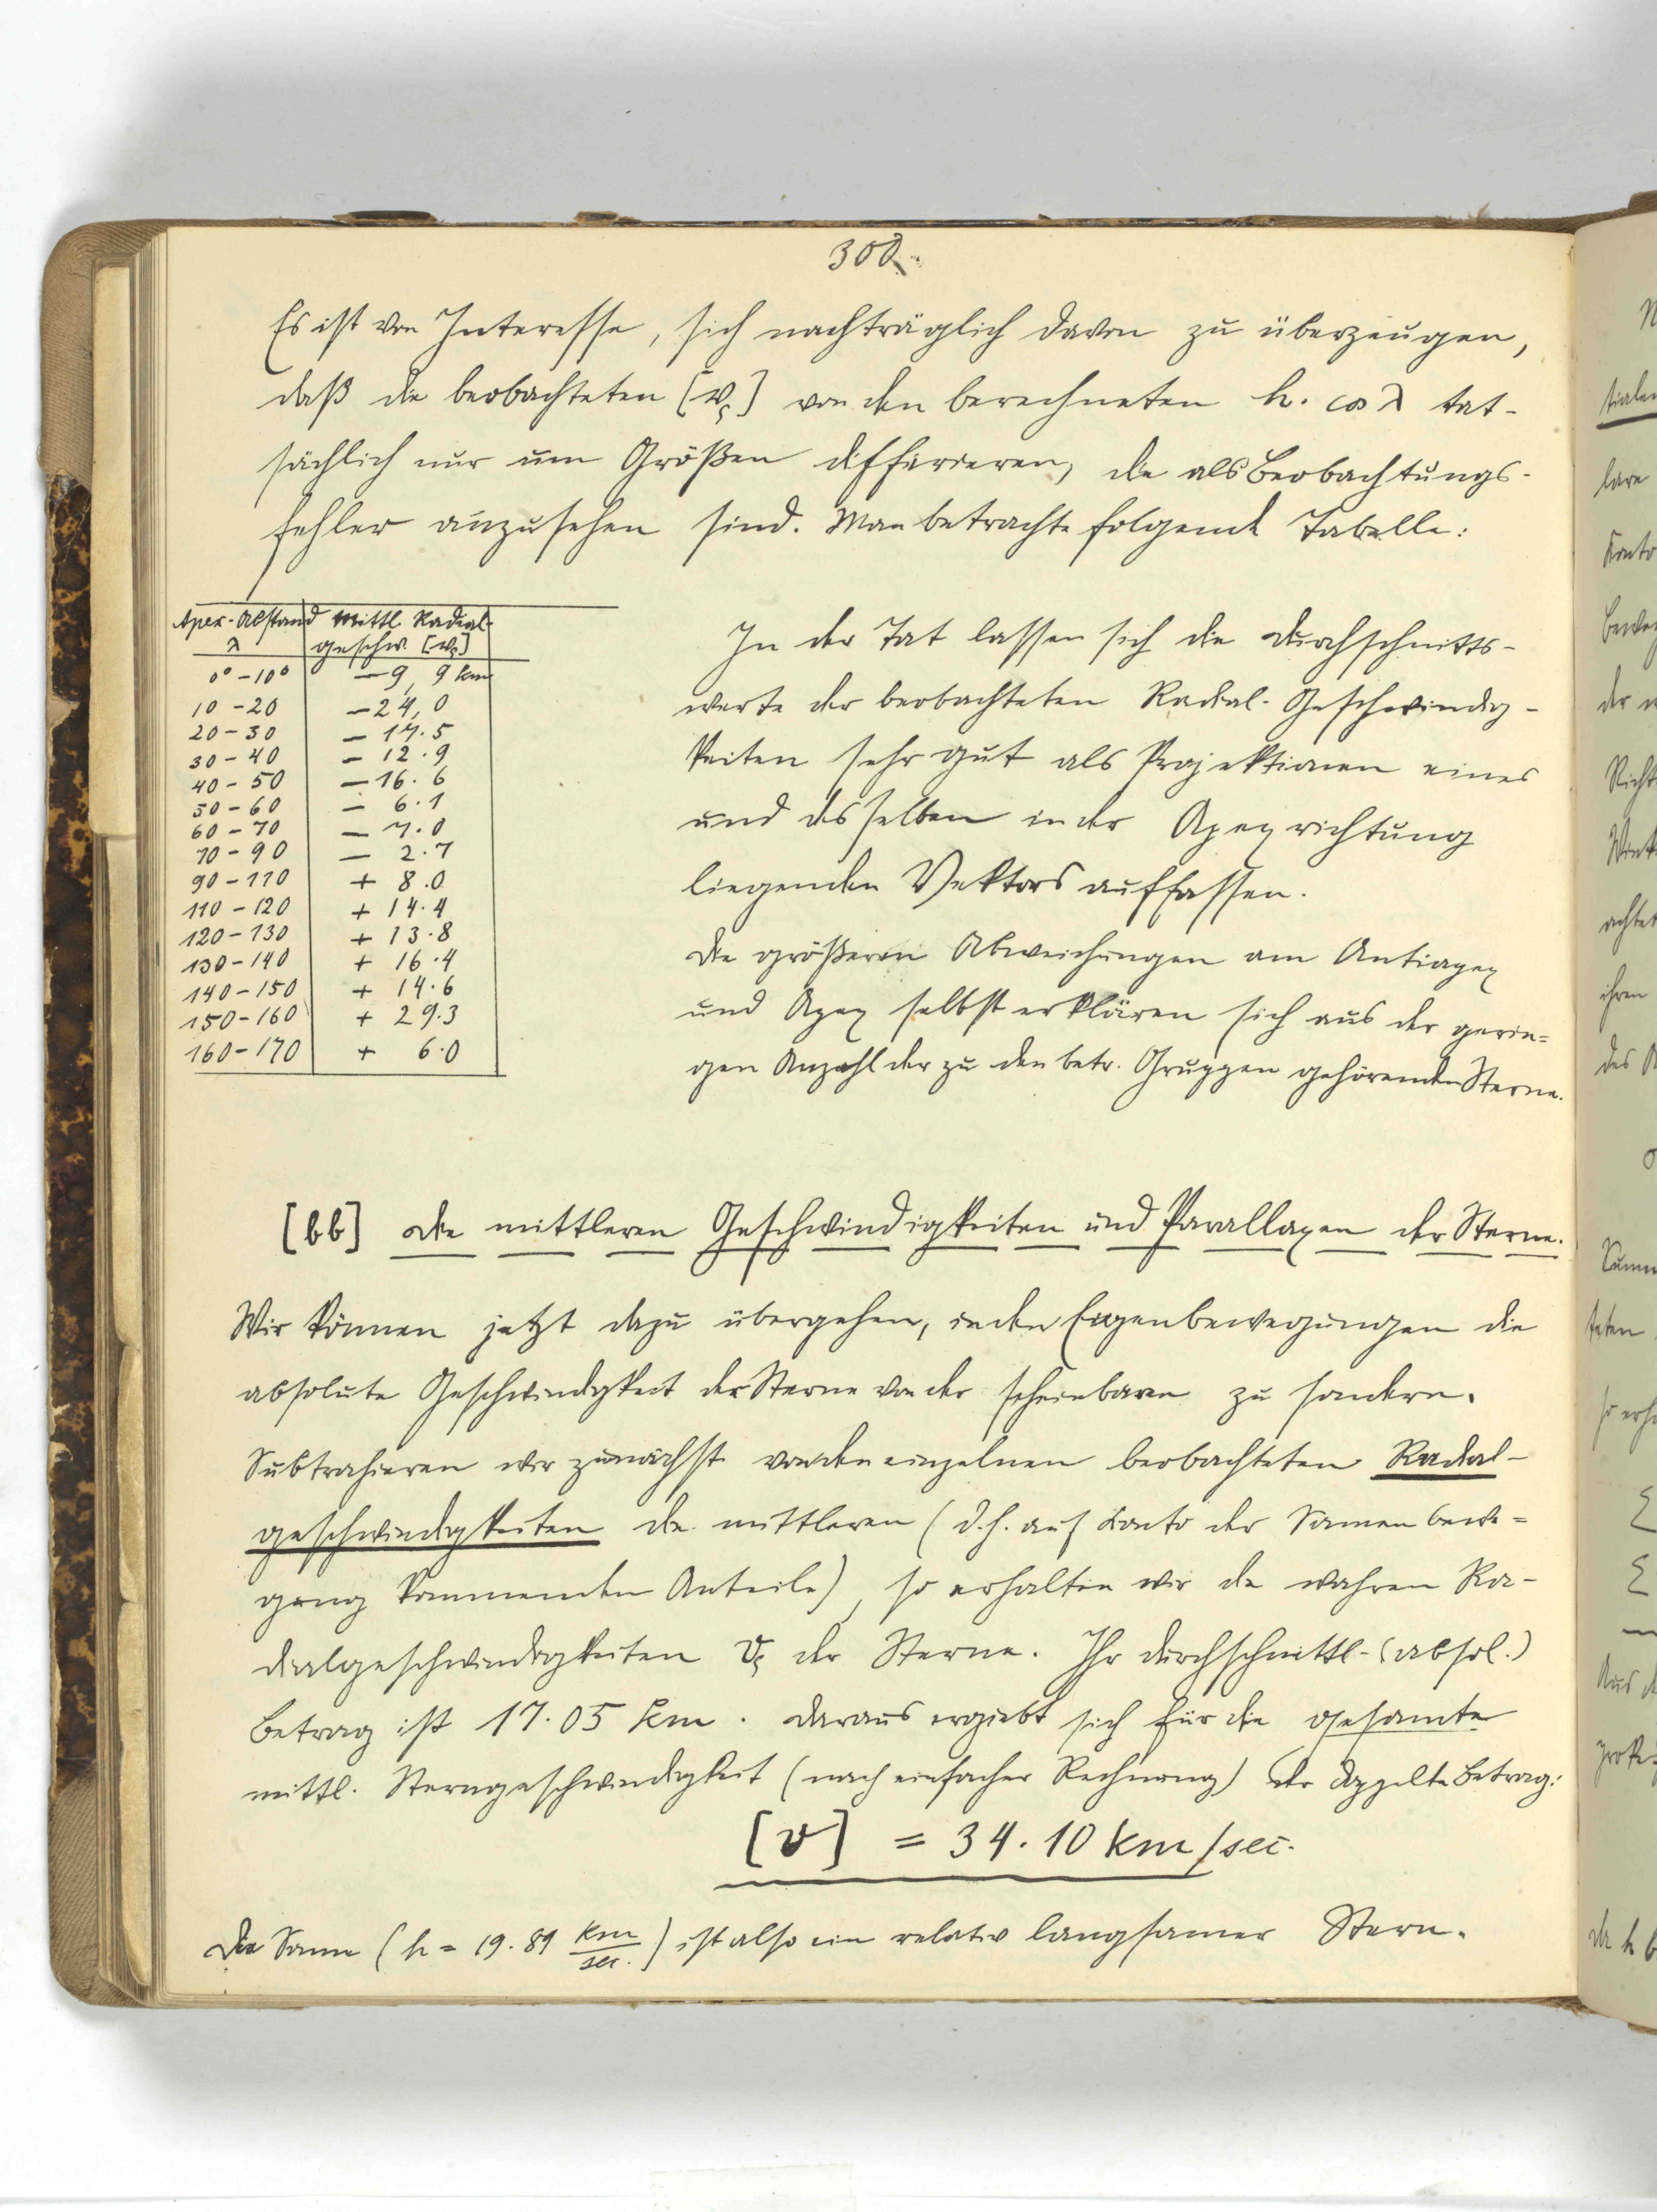 300.
Es ist von Interesse, sich nachträglich davon zu überzeugen,
daß die beobachteten [v̄ρ] von den berechneten h. cos λ tat-
sächlich nur um Größen differieren, die als Beobachtungs-
fehler anzusehen sind. Man betrachte folgende Tabelle:
Apex-Abstand λ | Mittl. Radial-geschw. [vρ]
0° - 10° | - 9, 9 km
10 - 20 | - 24, 0
20 - 30 | - 17.5
30 - 40 | - 12.9
40 - 50 | - 16.6
50 - 60 | - 6.1
60 - 70 | - 7.0
70 - 90 | - 2.7
90 - 110 | + 8.0
110 - 120 | + 14.4
120 - 130 | + 13.8
130 - 140 | + 16.4
140 - 150 | + 14.6
150 - 160 | + 29.3
160 - 170 | + 6.0
In der Tat lassen sich die Durchschnitts-
werte der beobachteten Radial-Geschwindig-
keiten sehr gut als Projektionen eines
und desselben in der Apexrichtung
liegenden Vektors auffassen.
Die größeren Abweichungen am Antiapex
und Apex selbst erklären sich aus der gerin=
gen Anzahl der zu den betr. Gruppen gehörenden Sterne.
[bb] Die mittleren Geschwindigkeiten und Parallaxen der Sterne.
Wir können jetzt dazu übergehen, in den Eigenbewegungen die
absolute Geschwindigkeit der Sterne von der scheinbaren zu sondern.
Subtrahieren wir zunächst von den einzelnen beobachteten Radial-
geschwindigkeiten die mittleren (d.h. auf Konto der Sonnenbewe=
gung kommenden Anteile), so erhalten wir die wahren Ra-
dialgeschwindigkeiten vρ der Sterne. Ihr durchschnittl. (absol.)
Betrag ist 17.05 km. Daraus ergiebt sich für die gesamte
mittl. Sterngeschwindigkeit (nach einfacher Rechnung) der doppelte Betrag:
[v] = 34.10 km/sec.
Die Sonne (h = 19.89 km/sec.) ist also ein relativ langsamer Stern.